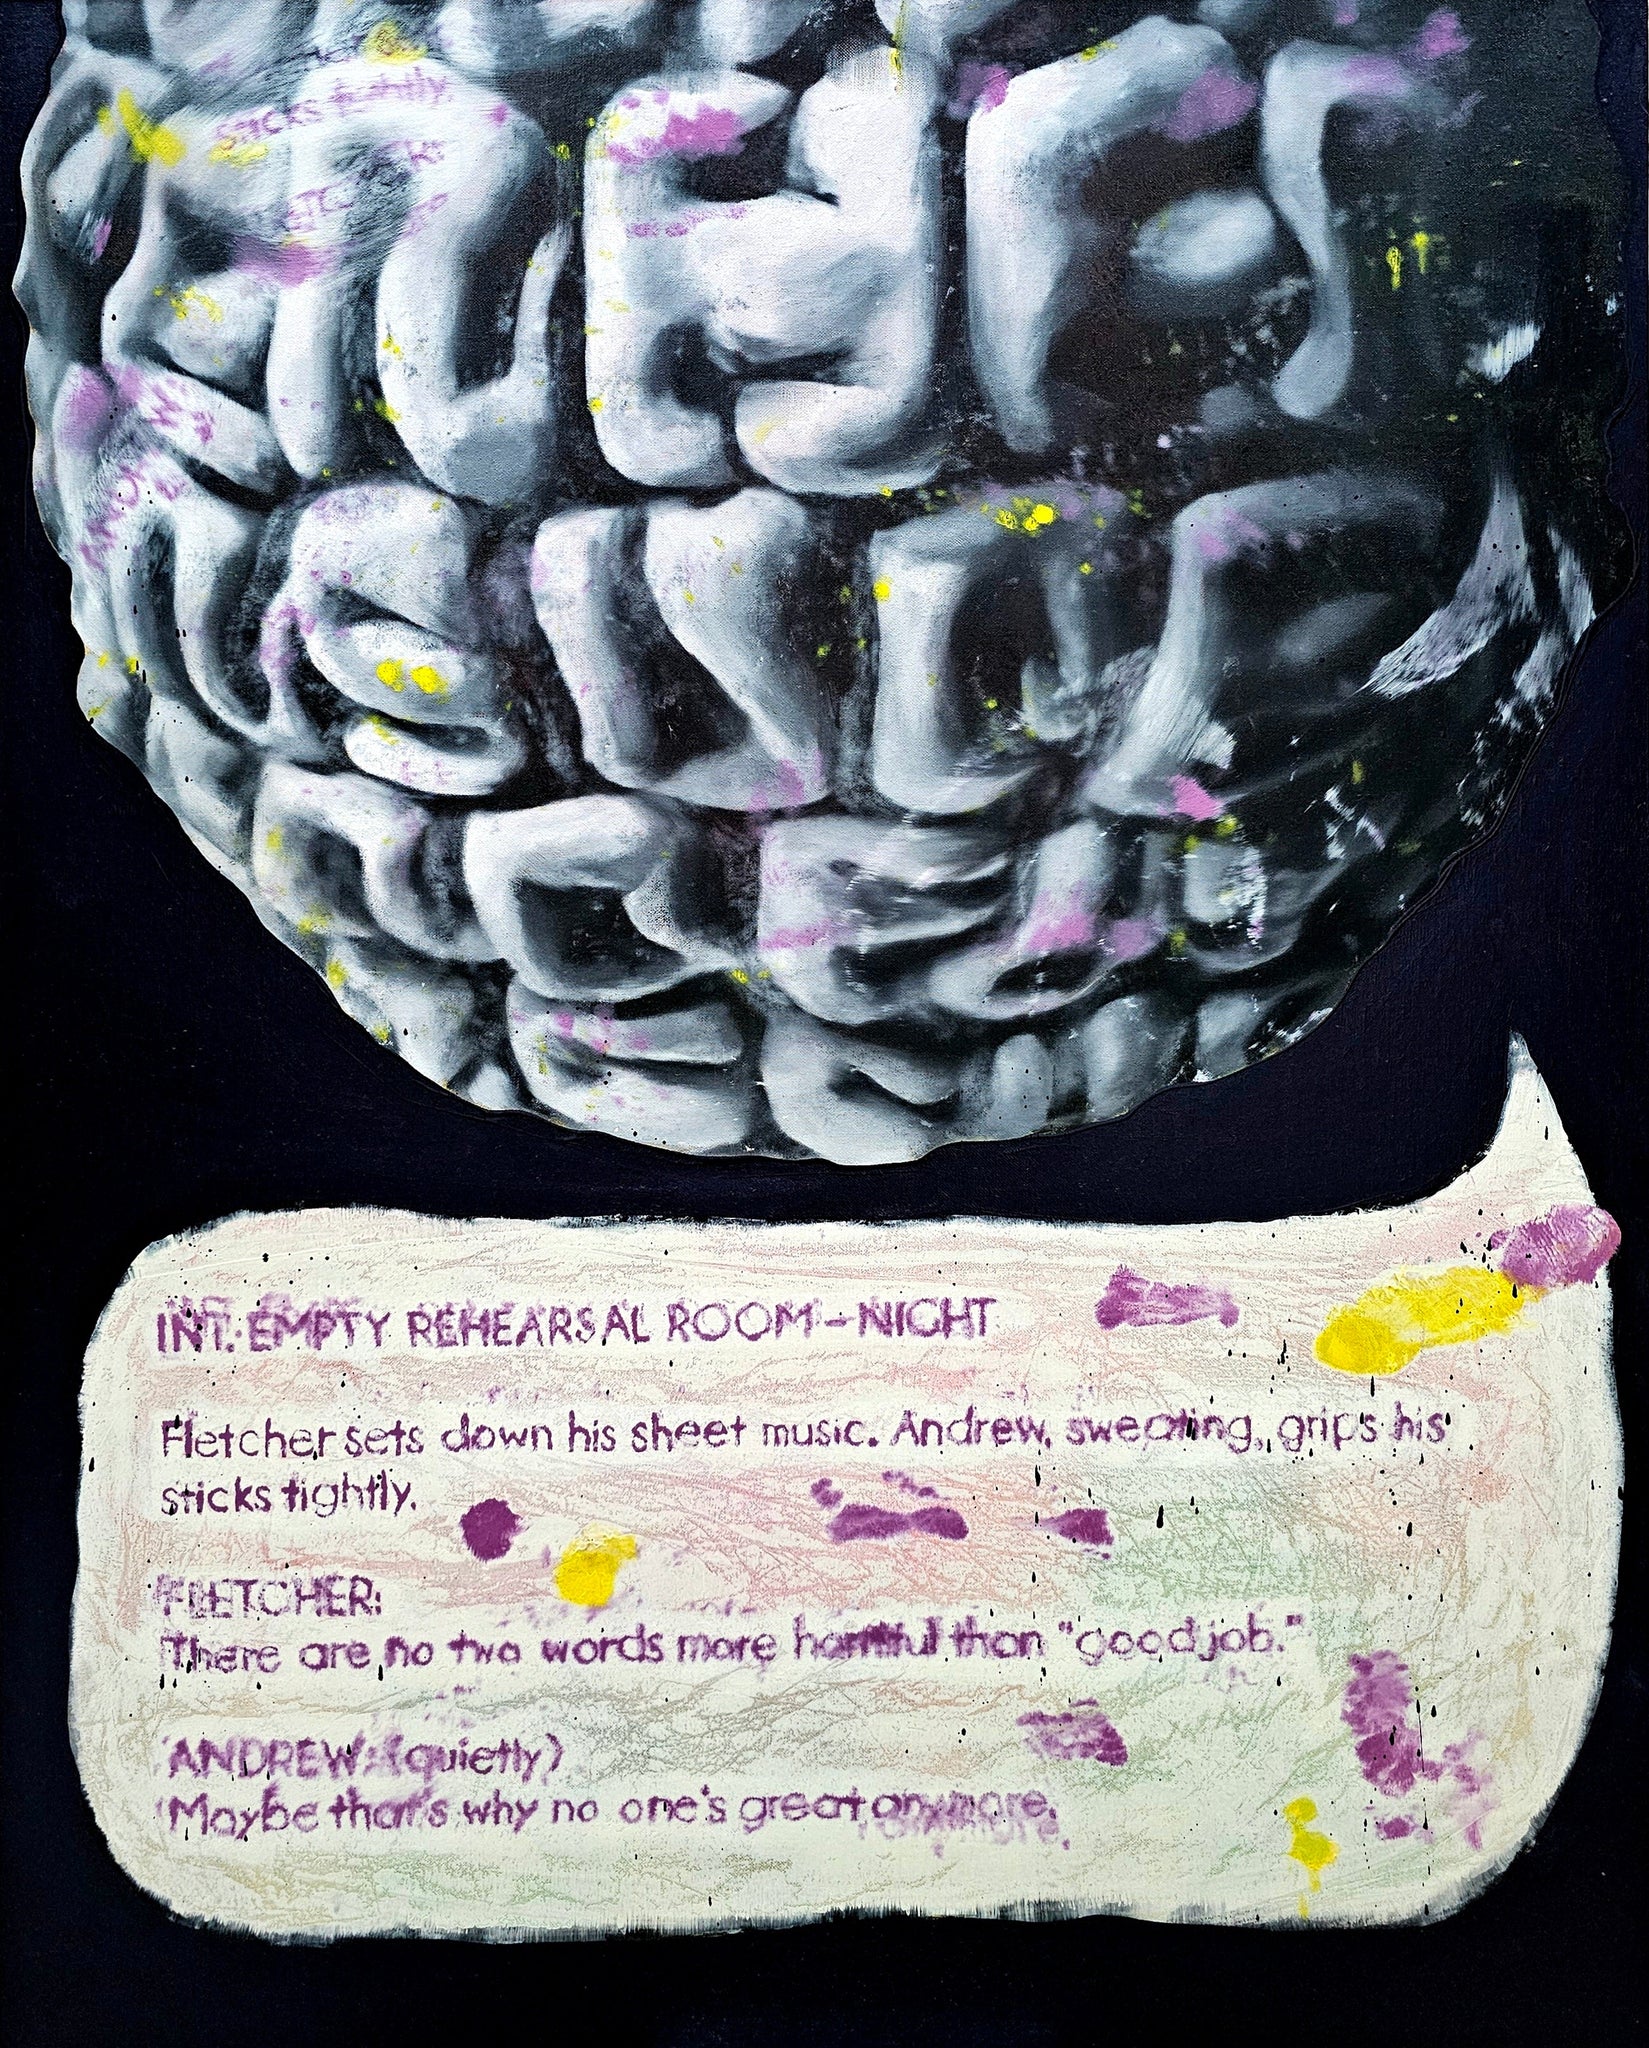 sticks tightly
INT. EMPTY REHEARSAL ROOM - NIGHT
Fletcher sets down his sheet music. Andrew, sweating, grips his
sticks tightly.
FLETCHER:
There are no two words more harmful than "good job."
ANDREW: (quietly)
Maybe that's why no one's great anymore.